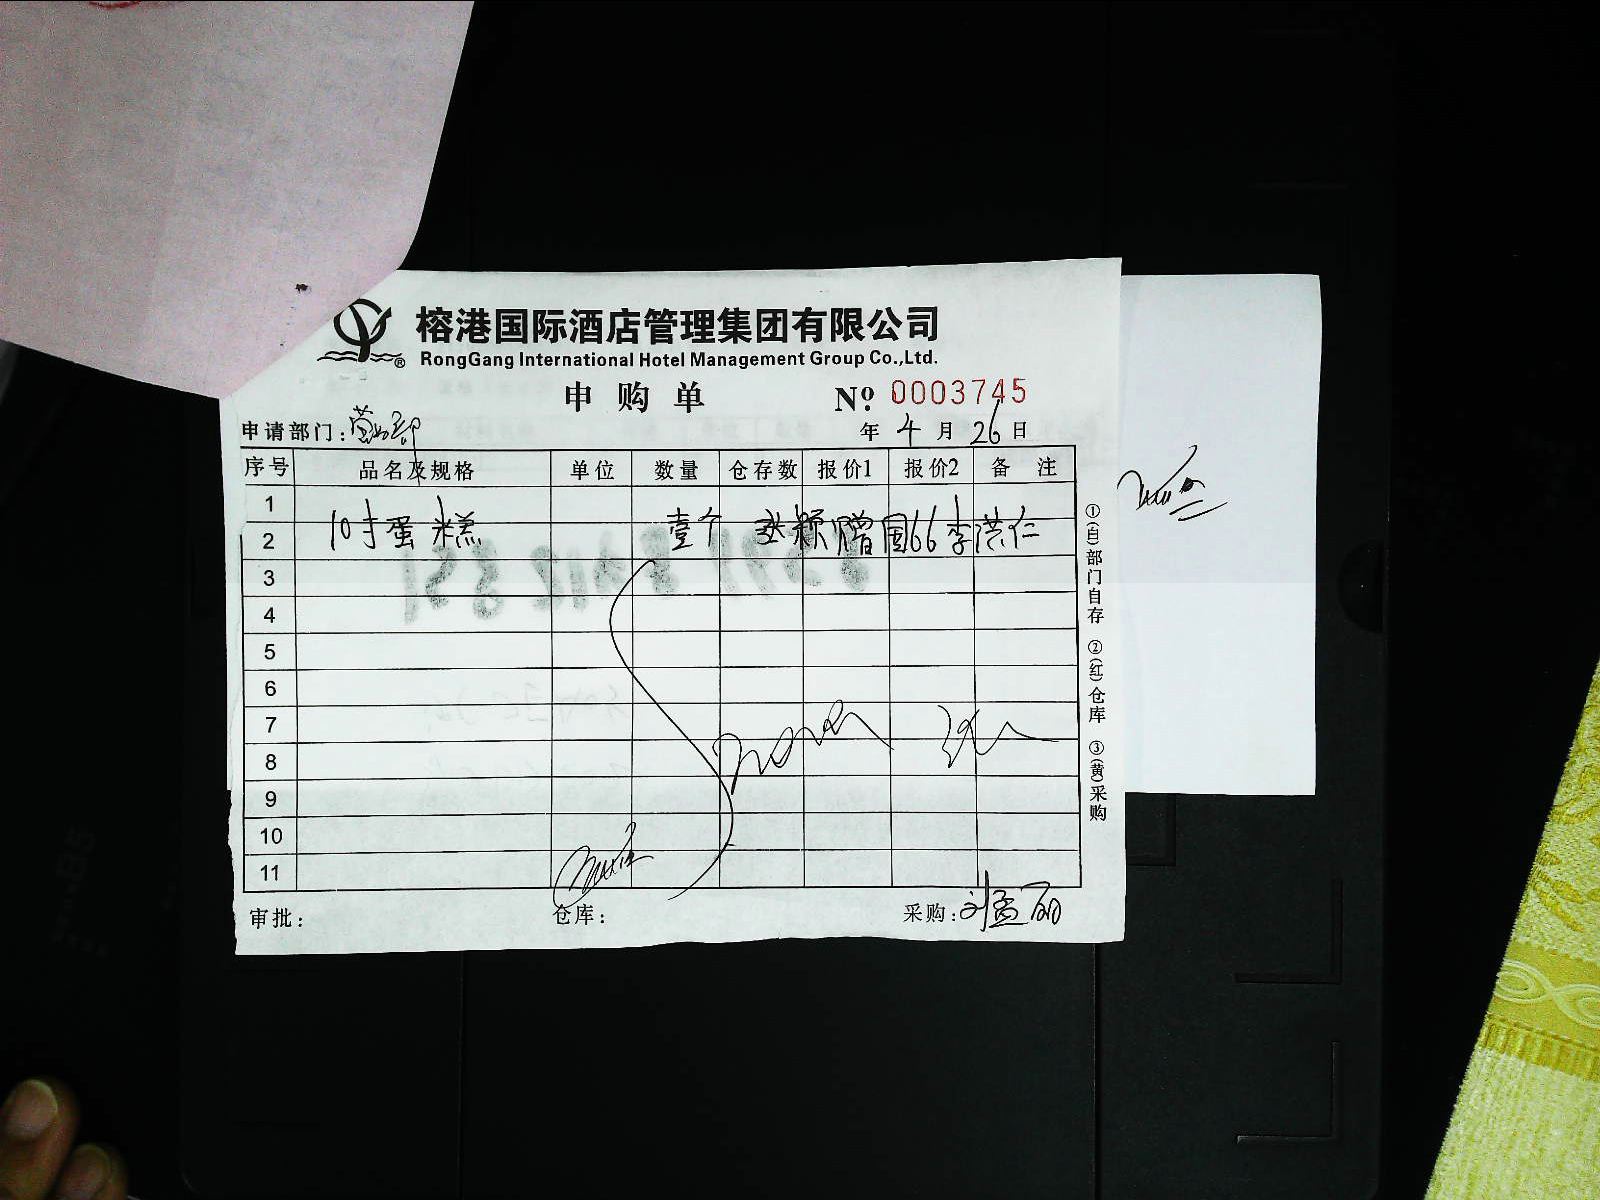 榕港国际酒店管理集团有限公司
RongGang International Hotel Management Group Co.,Ltd.
申购单 Nº. 0003745
申请部门: 营业部 年 4 月 26 日
序号 品名及规格 单位 数量 仓存数 报价1 报价2 备注
1
2 10寸蛋糕 壹个 张颖赠国66李洪仁
3
4
5
6
7
8
9
10
11
审批: 仓库: 采购: 刘孟丽
①(白)部门自存 ②(红)仓库 ③(黄)采购